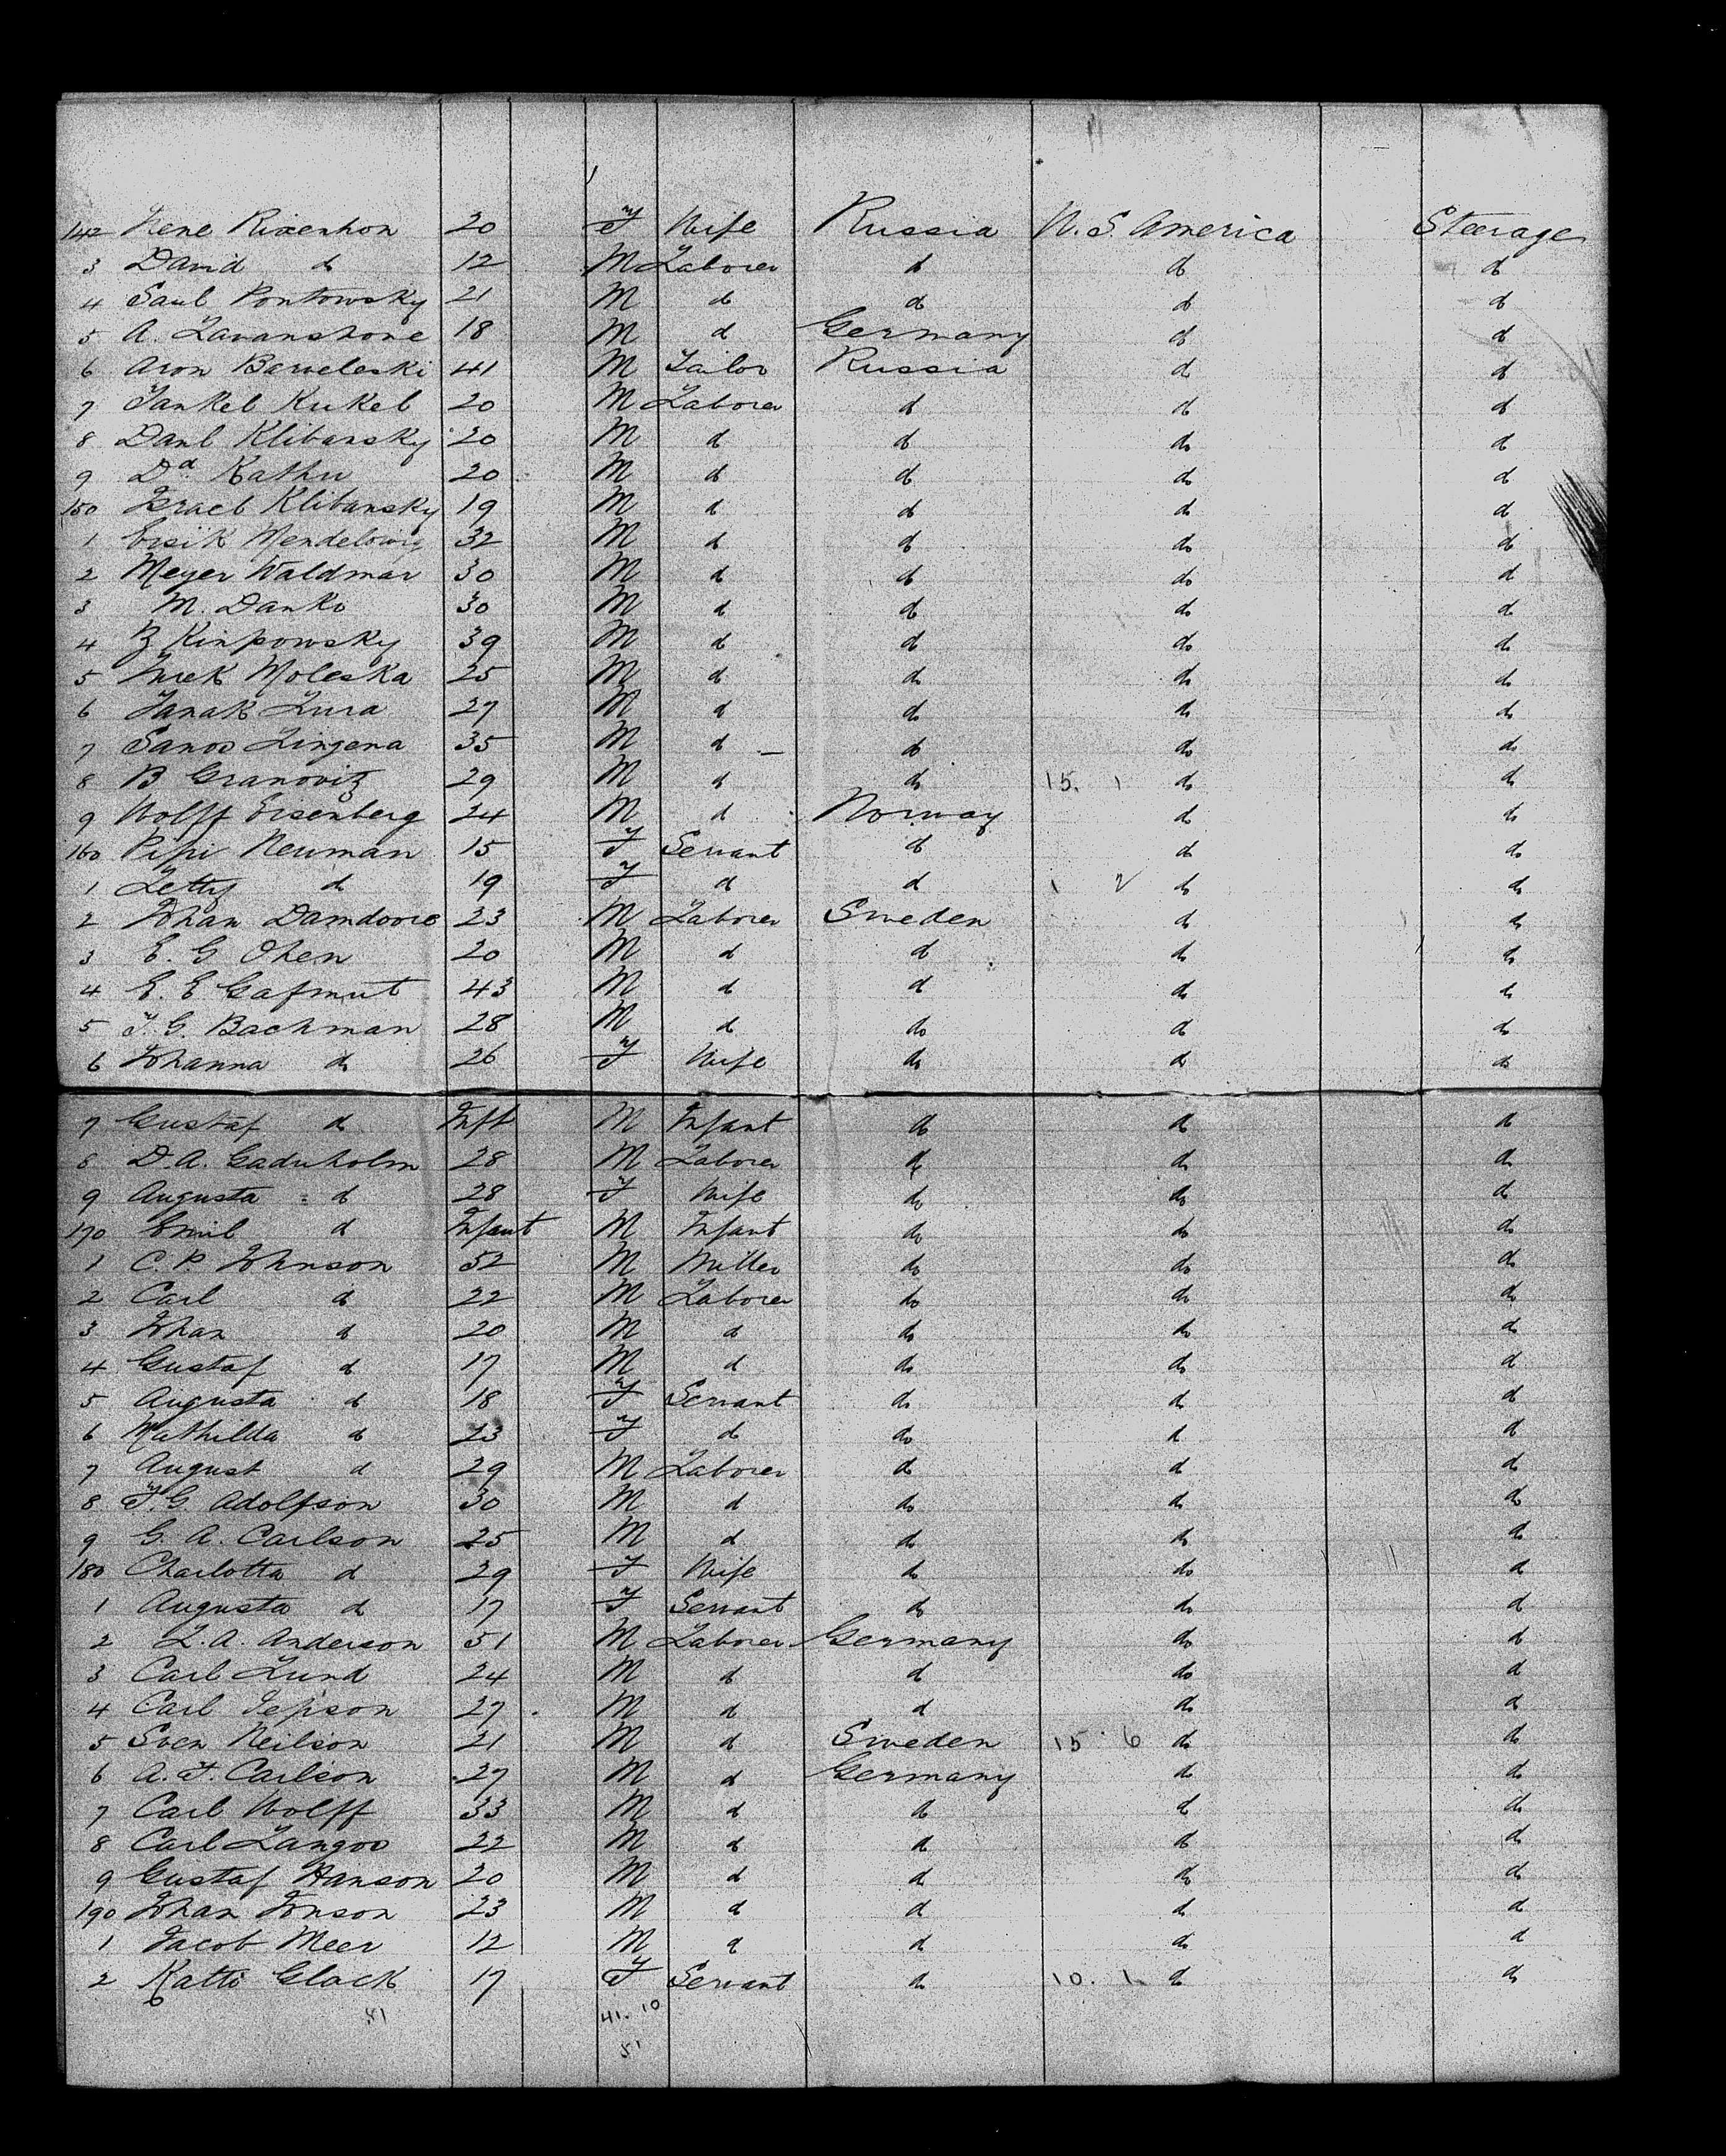 142 Rene Rixenhon 20 F Wife Russia U.S. America Steerage
3 David do 12 M Laborer do do do
4 Saul Pontowsky 21 M do do do do
5 A. Lavanshone 18 M do Germany do do
6 Aron Barveleski 41 M Tailor Russia do do
7 Jankel Kukel 20 M Laborer do do do
8 Danl Klibansky 20 M do do do do
9 Dd Kathu 20 M do do do do
150 Israel Klibansky 19 M do do do do
1 Eisik Mendelowig 32 M do do do do
2 Meyer Waldmar 30 M do do do do
3 M. Danko 30 M do do do do
4 Z Kinpowsky 39 M do do do do
5 Moleska 25 M do do do do
6 Janak Lura 27 M do do do do
7 Sanos Lingena 35 M do do do do
8 B Granovitz 29 M do do 15. 1 do do
9 Wolff Eisenberg 24 M do Norway do do
160 Pipi Neuman 15 F Servant do do do
1 Letty do 19 F do do 1 2 do do
2 Johan Damdoore 23 M Laborer Sweden do do
3 E. G Ohen 20 M do do do do
4 E. E Gafmut 43 M do do do do
5 F. G. Bachman 28 M do do do do
6 Johanna do 26 F Wife do do do
7 Gustaf do Inft M Infant do do do
8 D. A. Gaduholm 28 M Laborer do do do
9 Augusta do 28 F Wife do do do
170 Emil do Infant M Infant do do do
1 C. P. Johnson 52 M Miller do do do
2 Carl do 22 M Laborer do do do
3 Johan do 20 M do do do do
4 Gustaf do 17 M do do do do
5 Augusta do 18 F Servant do do do
6 Mathilda do 23 F do do do do
7 August do 29 M Laborer do do do
8 F. G. Adolfson 30 M do do do do
9 G. A. Carlson 25 M do do do do
180 Charlotta do 29 F Wife do do do
1 Augusta do 17 F Servant do do do
2 L. A. Anderson 51 M Laborer Germany do do
3 Carl Lund 24 M do do do do
4 Carl Jepson 27 M do do do do
5 Sven Neilson 21 M do Sweden 15 6 do do
6 A. F. Carlson 27 M do Germany do do
7 Carl Wolff 33 M do do do do
8 Carl Langoo 22 M do do do do
9 Gustaf Hanson 20 M do do do do
190 Johan Jonson 23 M do do do do
1 Jacob Meer 12 M do do do do
2 Katti Glack 17 F Servant do 10. 1. do do
51 41. 10
51